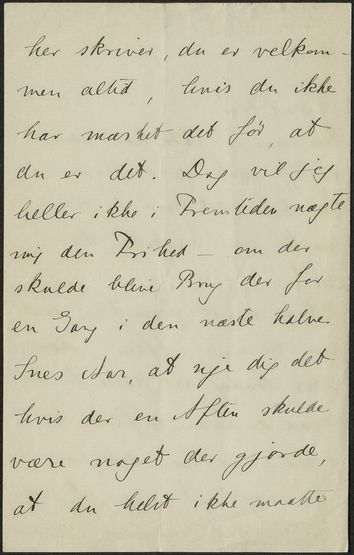 her skriver, du er velkom-
men altid, hvis du ikke
har mærket det før, at
du er det. Dog vil jeg
heller ikke i Fremtiden nægte
mig den Frihed – om der
skulde blive Brug der for
en Gang i den næste halve
Snes Aar, at sige dig det
hvis der en Aften skulde
være noget der gjorde,
at du helst ikke maatte